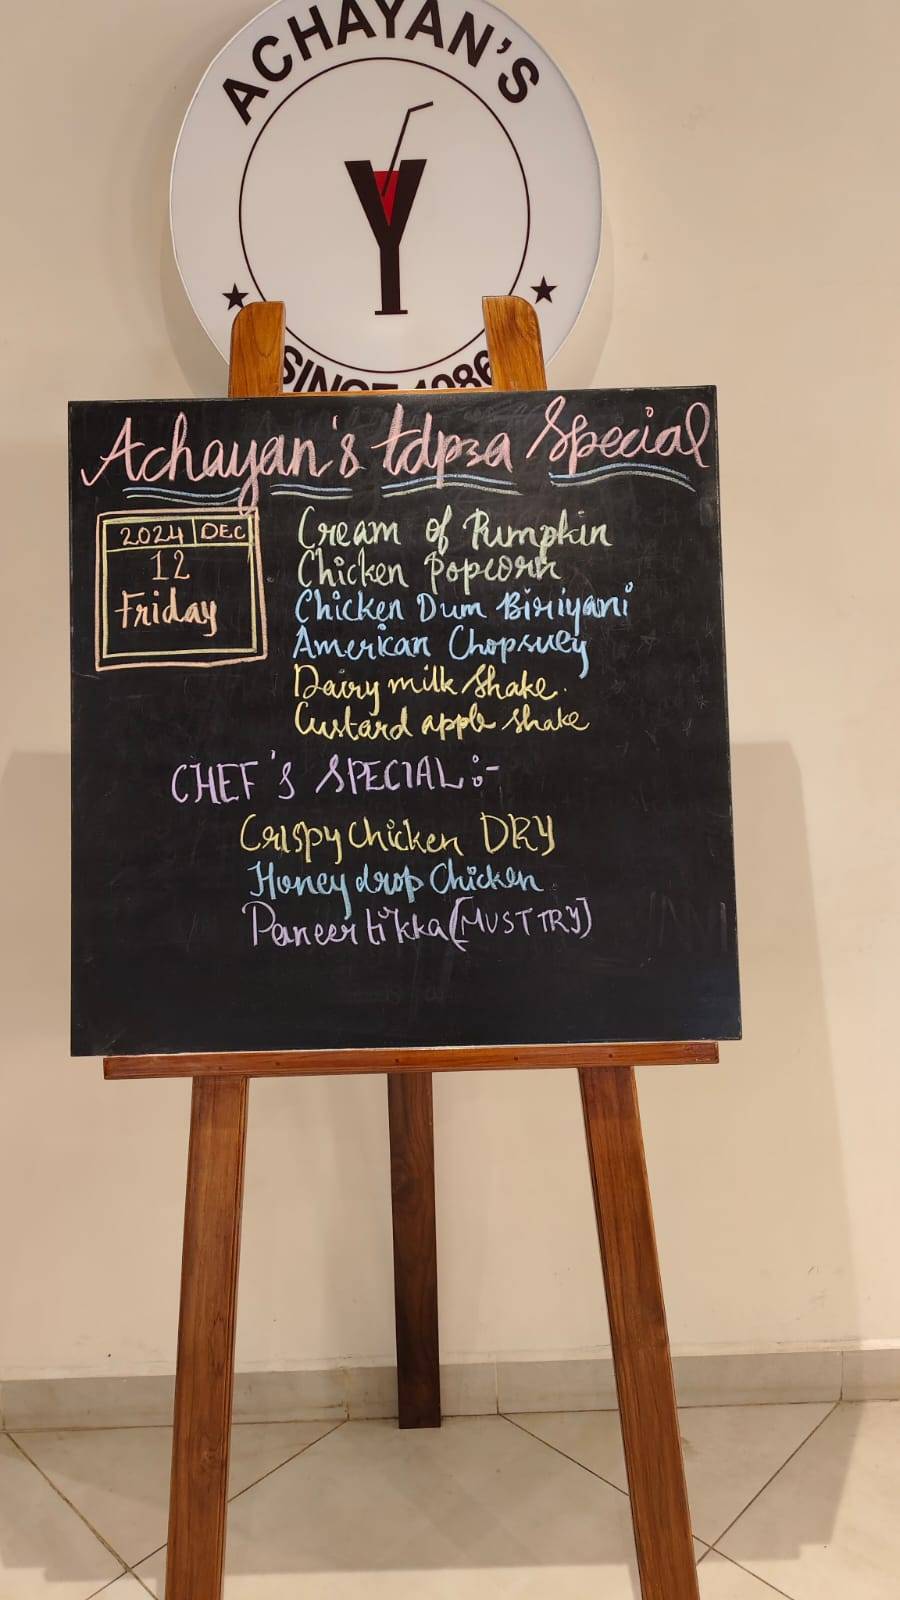 ACHAYAN'S
SINCE 1986
Achayan's tdpsa Special
2024 DEC
12
Friday
Cream of Pumpkin
Chicken Popcorn
Chicken Dum Biriyani
American Chopsuey
Dairy milk Shake.
Custard apple shake
CHEF'S SPECIAL:-
Crispy Chicken DRY
Honey drop Chicken
Paneer tikka [MUST TRY]